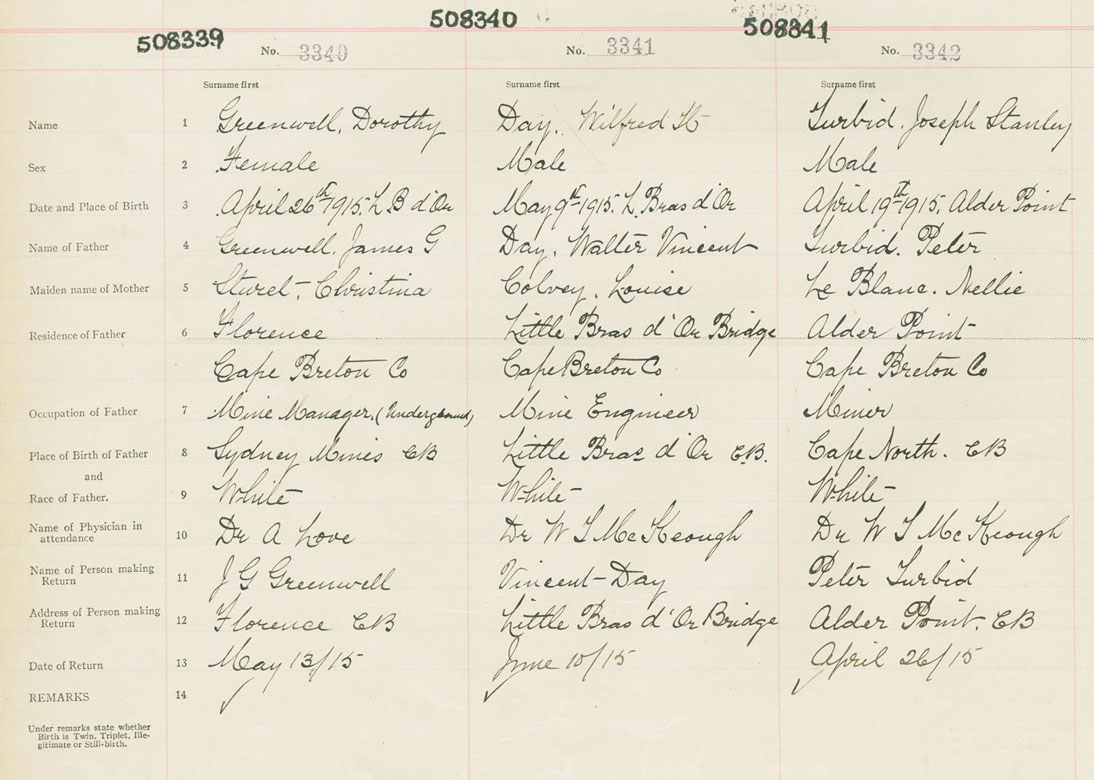 508339 508340 508341
No. 3340 No. 3341 No. 3342
Surname first Surname first Surname first
Name 1 Greenwell, Dorothy Day, Wilfred Surbid, Joseph Stanley
Sex 2 Female Male Male
Date and Place of Birth 3 April 26th 1915. L B d'Or May 9th 1915. L. Bras d'Or April 19th 1915. Alder Point
Name of Father 4 Greenwell, James G Day, Walter Vincent Surbid, Peter
Maiden name of Mother 5 Christina Colvey, Louise Le Blanc. Nellie
Residence of Father 6 Florence Little Bras d'Or Bridge Alder Point
Cape Breton Co Cape Breton Co Cape Breton Co
Occupation of Father 7 Mine Manager, (Underground) Mine Engineer Miner
Place of Birth of Father 8 Sydney Mines CB Little Bras d'Or CB. Cape North. CB
and
Race of Father. 9 White White White
Name of Physician in attendance 10 Dr A Love Dr W S McKeough Dr W S McKeough
Name of Person making Return 11 J G Greenwell Vincent Day Peter Surbid
Address of Person making Return 12 Florence CB Little Bras d'Or Bridge Alder Point. CB
Date of Return 13 May 13/15 June 10/15 April 26/15
REMARKS 14
Under remarks state whether
Birth is Twin, Triplet, Ille-
gitimate or Still-birth.